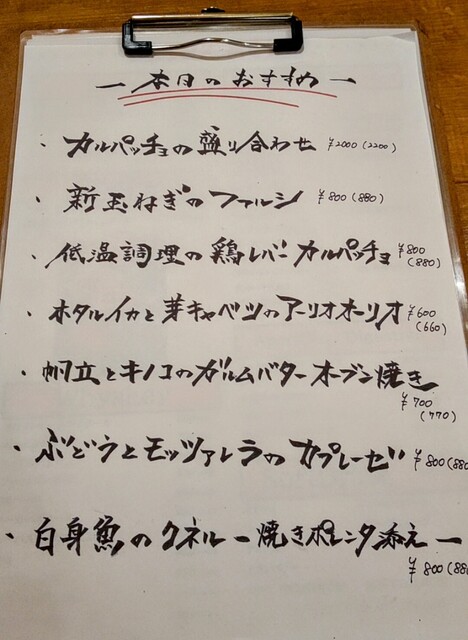 ー本日のおすすめー
・カルパッチョの盛り合わせ ¥2000(2200)
・新玉ねぎのファルシ ¥800(880)
・低温調理の鶏レバーカルパッチョ ¥800
(880)
・ホタルイカと芽キャベツのアーリオオーリオ ¥600
(660)
・帆立とキノコのガルムバターオーブン焼き
¥700
(770)
・ぶどうとモッツァレラのカプレーゼ ¥800(880
・白身魚のクネルー焼きポレンタ添えー
¥800(880